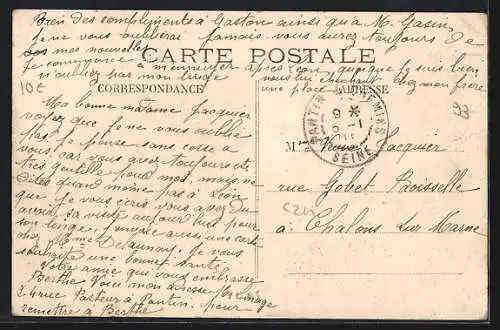 Bien des compliments à Gaston ainsi qu'à M. Gasin
je ne vous oublierai jamais vous aurez toujours de
mes nouvelles
CARTE POSTALE
je commence à m'ennuyer après Léon quoique je suis bien
n'oubliez pas mon linge
nous lui cherchons chez mon frère
une place
CORRESPONDANCE
ADRESSE
10€
Ma bonne madame Jacquier
voyez que je ne vous oublie
pas je pense sans cesse à
vous, car vous avez toujours été
très gentille pour moi, mais ne
dites quand même pas à Léon
que je vous écris vous avez du
avoir sa visite aujourd'hui pour
son linge, j'envoie aussi une carte
chez Mme Delaunay. je vous
souhaite une bonne santé
Votre amie qui vous embrasse
Berthe Voici mon adresse
24 rue Pasteur à Pantin pour
remettre à Berthe
PANTIN
SEINE
9 *
5 - 1
Mme Veuve Jacquier
rue Gobet Boisselle
à Chalons sur Marne